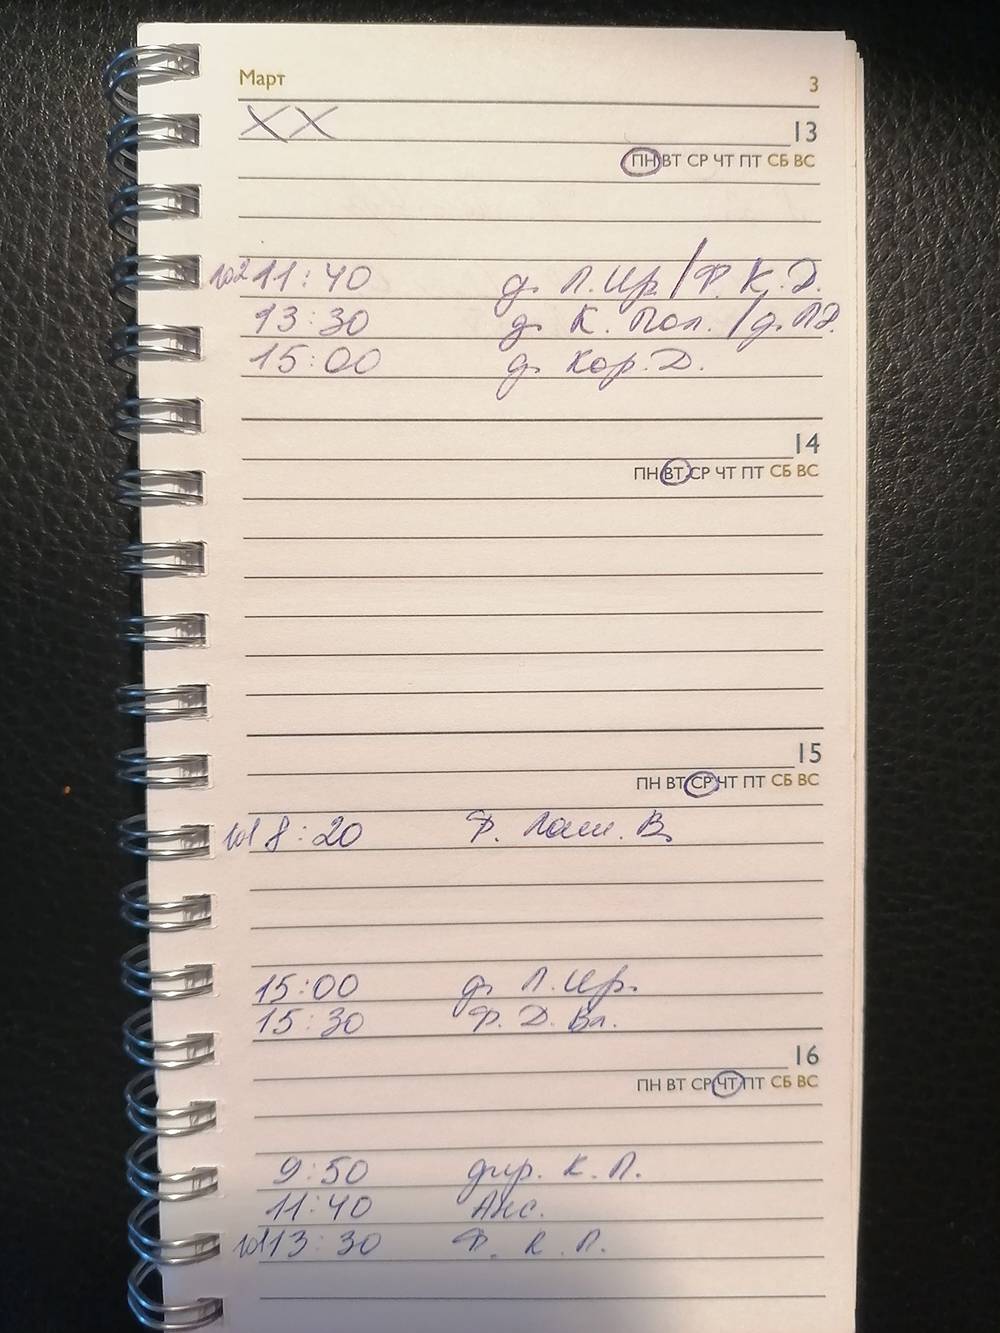 Март 3
XX
13
ПН ВТ СР ЧТ ПТ СБ ВС
102 11:40 д. Л. Ир. / Ф. К. Д.
13:30 д. К. Пол. / д. Л.Э.
15:00 д. Кор. Д.
14
ПН ВТ СР ЧТ ПТ СБ ВС
15
ПН ВТ СР ЧТ ПТ СБ ВС
101 8:20 Ф. Паш. В.
15:00 д. Л. Ир.
15:30 Ф. Д. Вл.
16
ПН ВТ СР ЧТ ПТ СБ ВС
9:50 дир. К. П.
11:40 Анс.
101 13:30 Ф. К. П.